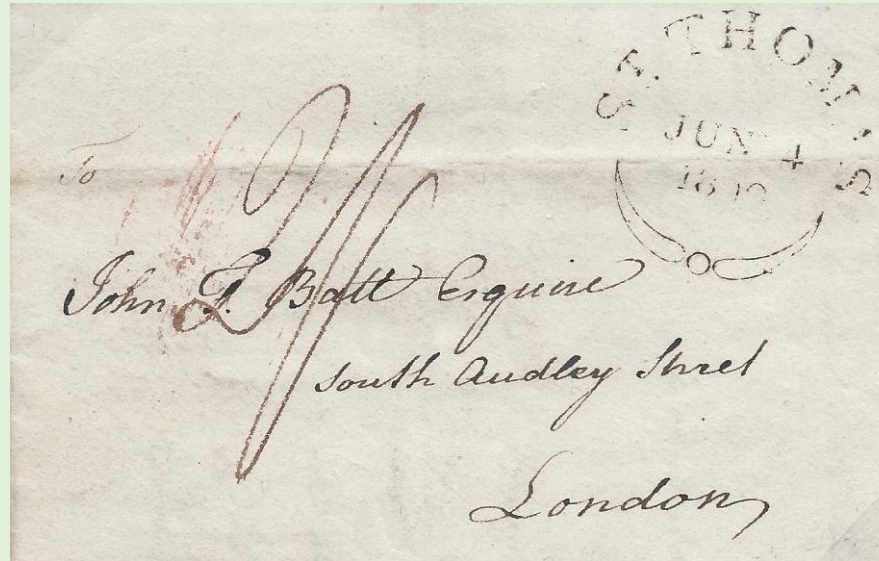 ST. THOMAS
JUN 4
To
2/
John F. Batt Esquire
South Audley Street
London